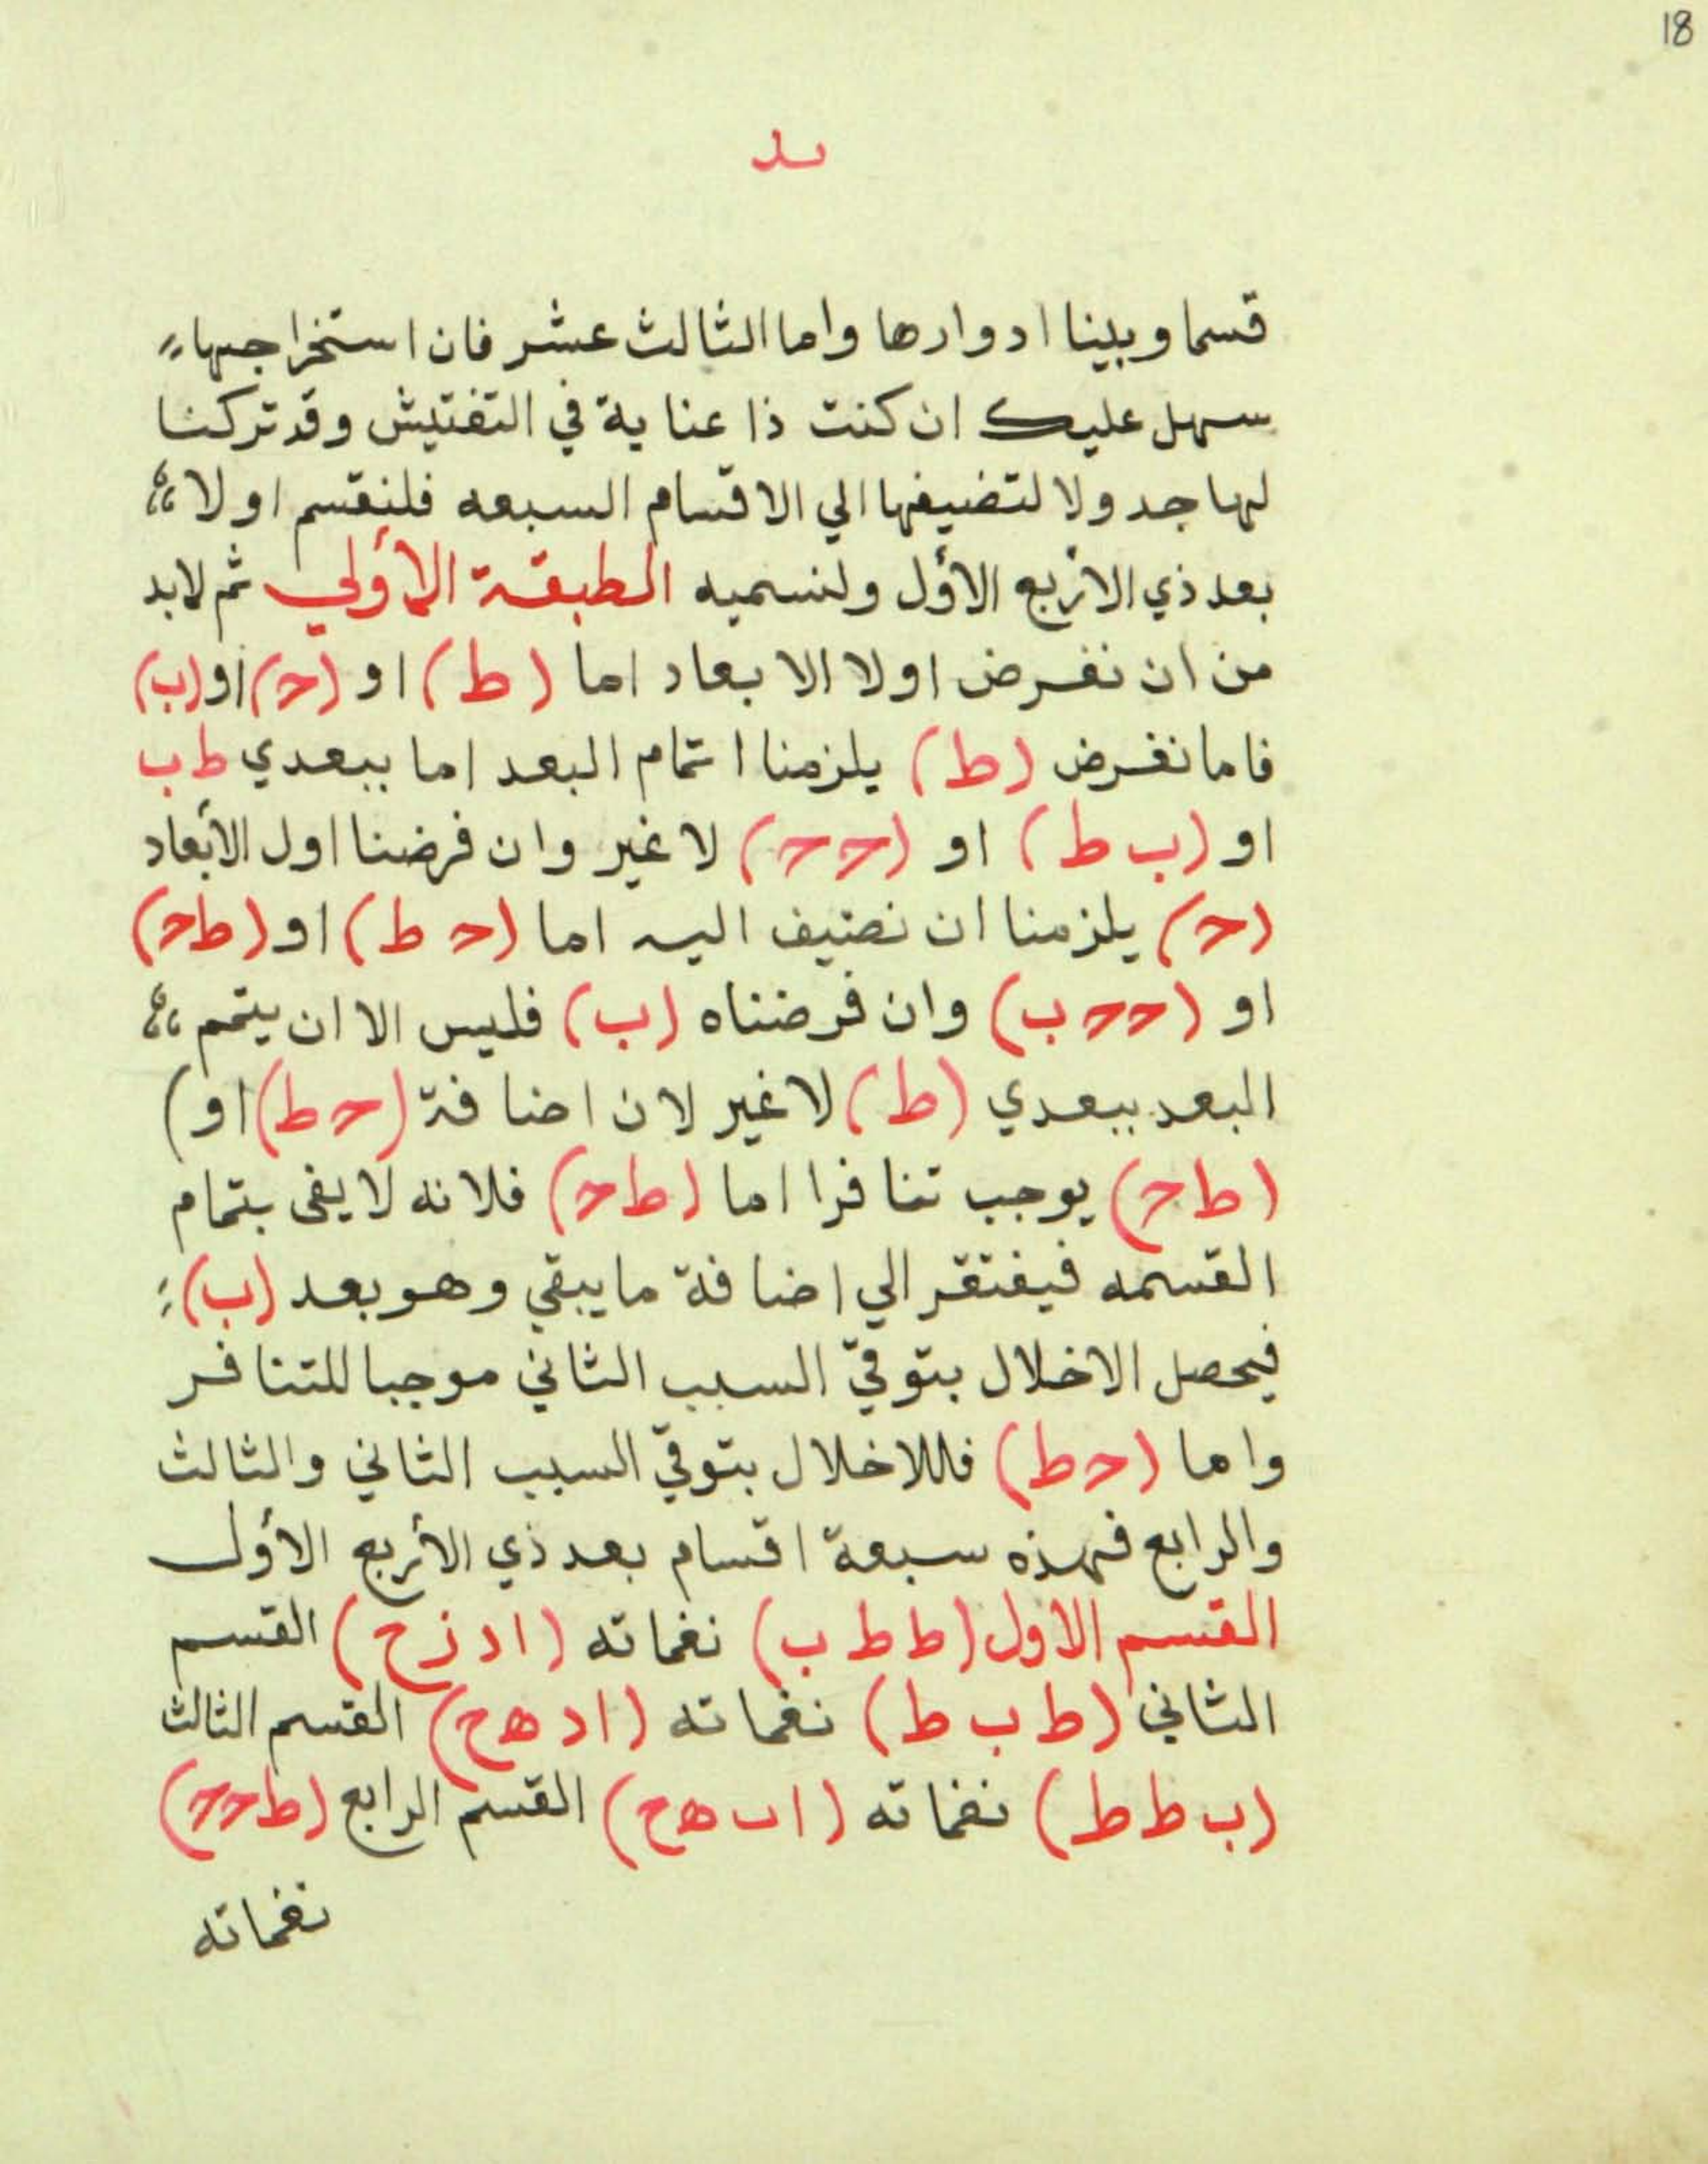 18
يد
قسما وبينا ادوارها واما الثالث عشر فان استخراجها
سهل عليك ان كنت ذا عناية في التفتيش وقد تركنا
لها جدولا لتضيفها الي الاقسام السبعه فلنقسم اولا
بعد ذي الأربع الأول ولنسميه الطبقة الأولي ثم لابد
من ان نفرض اولا الابعاد اما (ط) او (ح) او (ب)
فاما نفرض (ط) يلزمنا اتمام البعد اما ببعدي ط ب
او (ب ط) او (ح ح) لا غير وان فرضنا اول الأبعاد
(ح) يلزمنا ان نضيف اليه اما (ح ط) او (ط ح)
او (ح ح ب) وان فرضناه (ب) فليس الا ان يتمم
البعد ببعدي (ط) لا غير لان اضافة (ح ط) او)
(ط ح) يوجب تنافرا اما (ط ح) فلانه لا يفى بتمام
القسمه فيفتقر الي اضافة ما يبقي وهو بعد (ب)
فيحصل الاخلال بتوقيّ السبب الثاني موجبا للتنافر
واما (ح ط) فللاخلال بتوقيّ السبب الثاني والثالث
والرابع فهذه سبعة اقسام بعد ذي الأربع الأول
القسم الاول (ط ط ب) نغماته (ا د ز ح) القسم
الثاني (ط ب ط) نغماته (ا د ه ح) القسم الثالث
(ب ط ط) نغماته (ا ب ه ح) القسم الرابع (ط ح ح)
نغماته